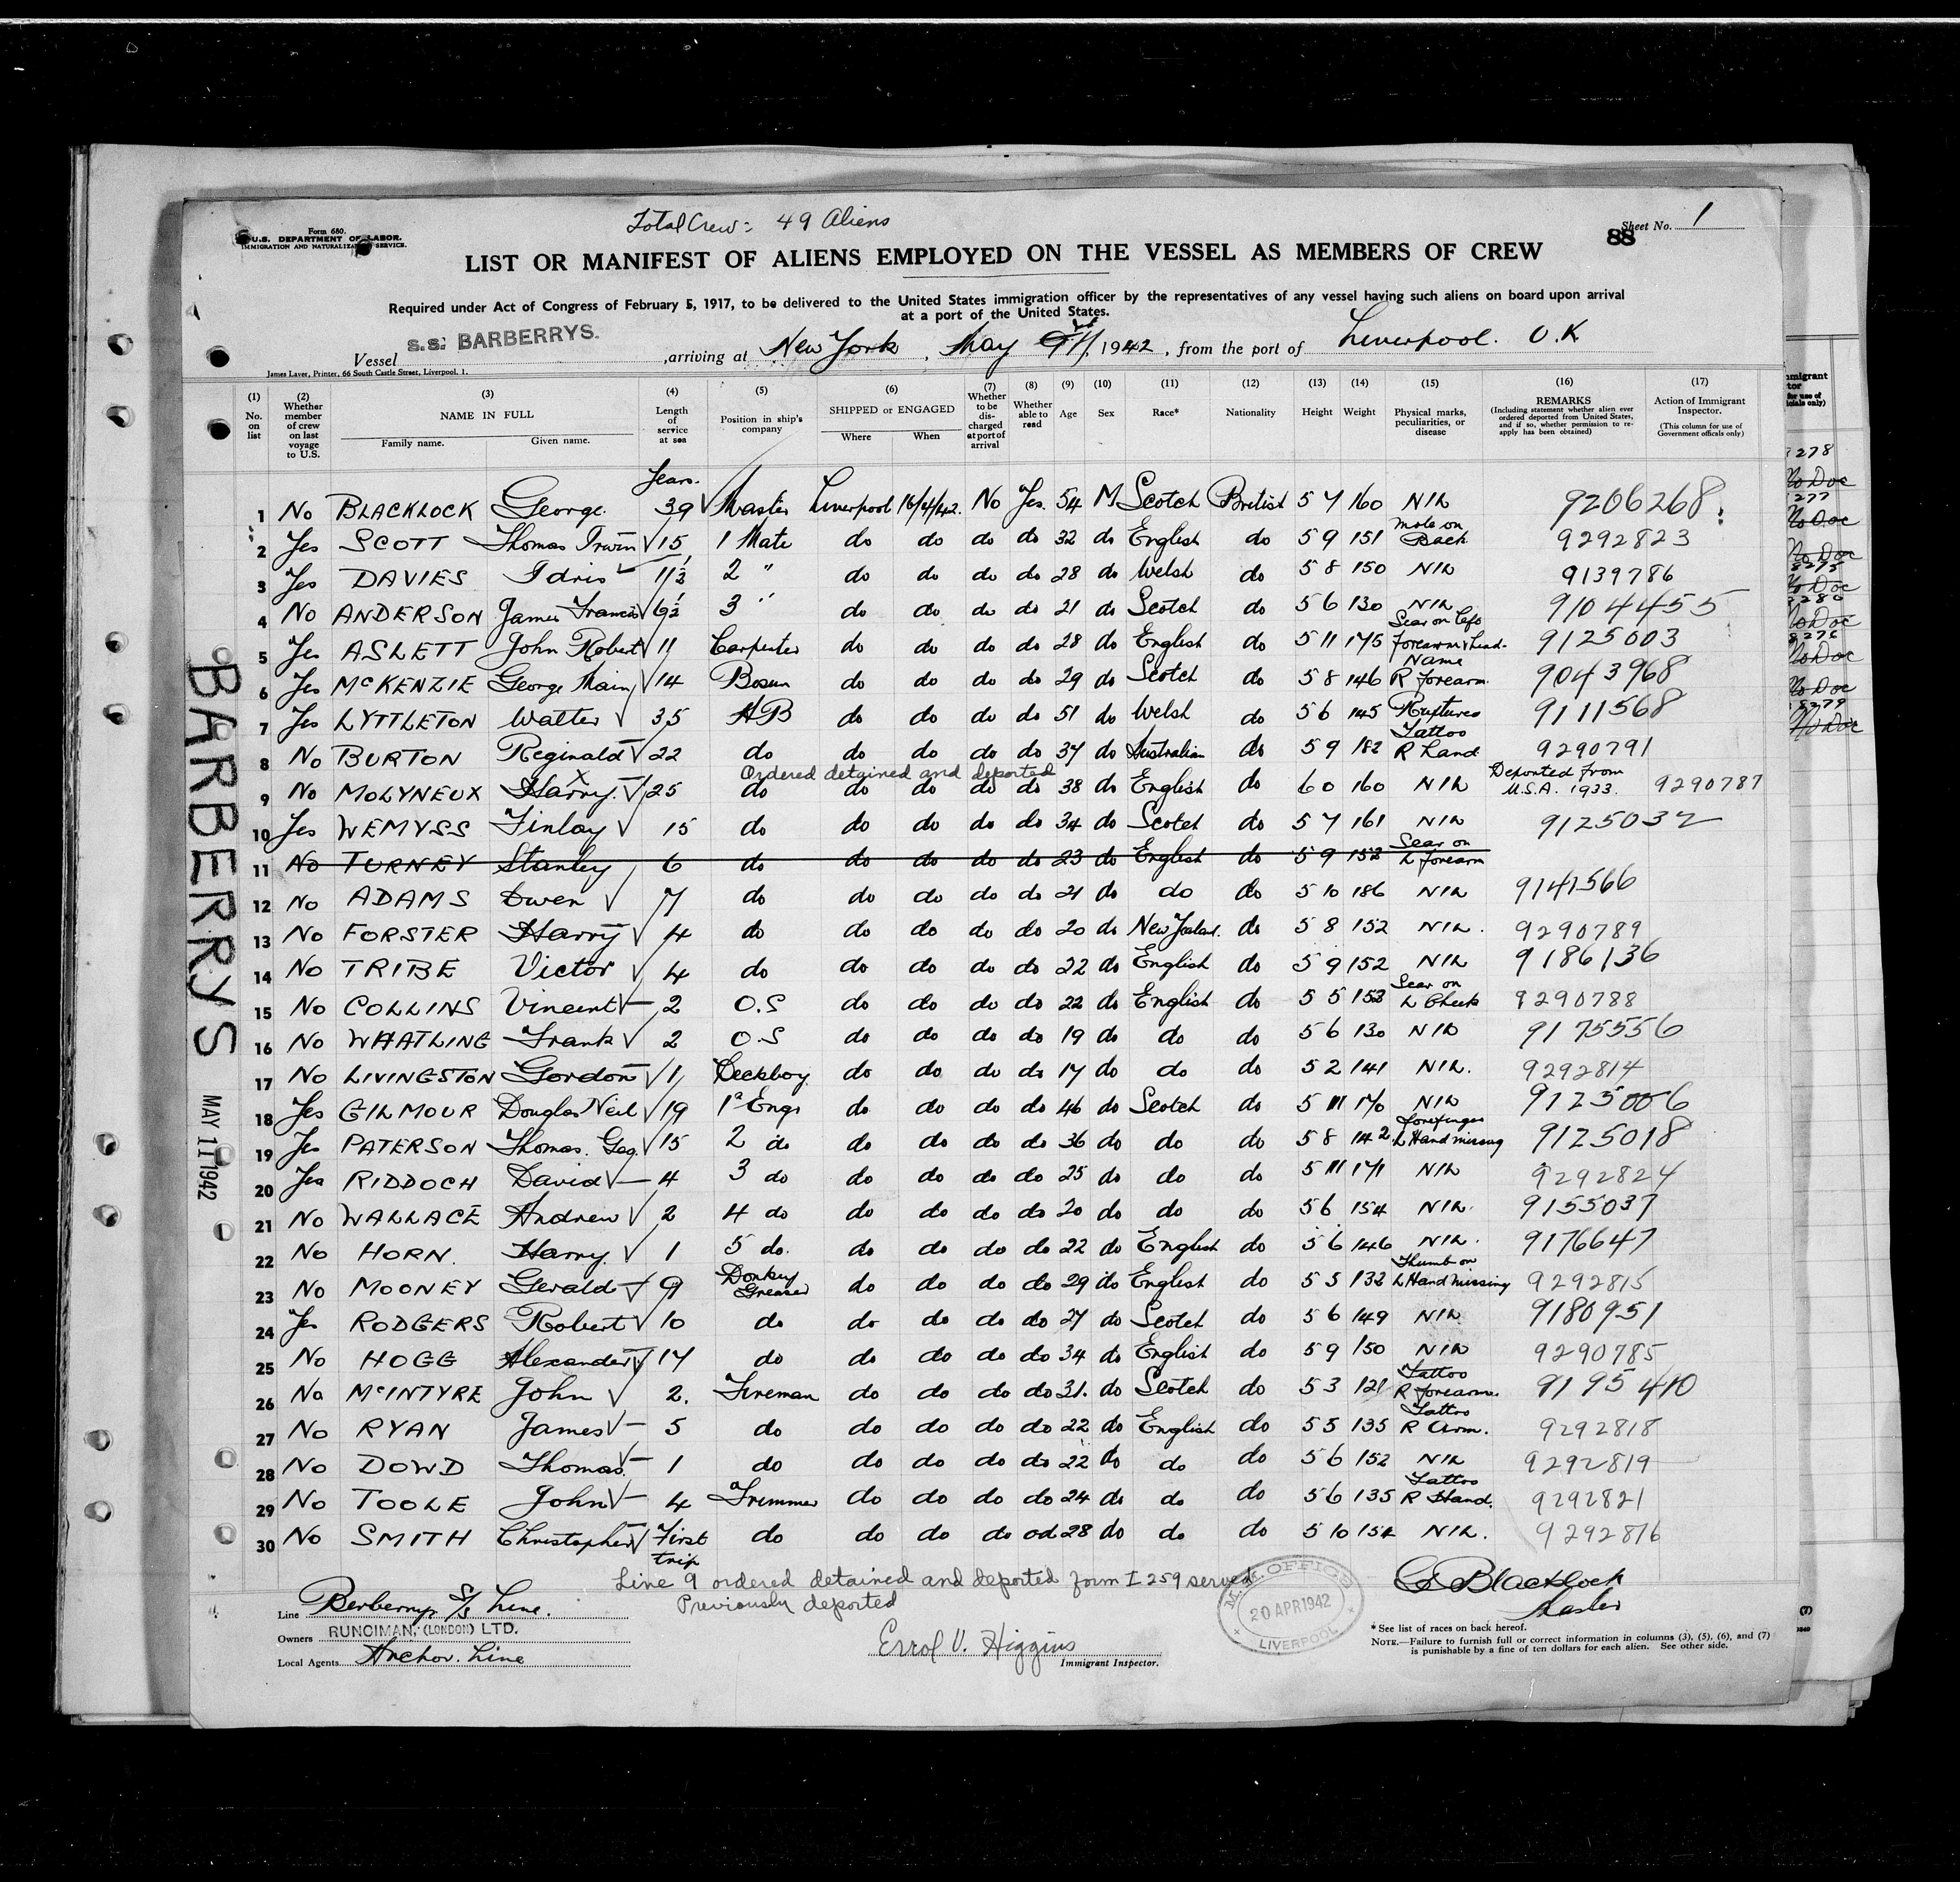 Total Crew: 49 Aliens
Form 680.
U.S. DEPARTMENT OF LABOR.
IMMIGRATION AND NATURALIZATION SERVICE.
Sheet No. 1
88
LIST OR MANIFEST OF ALIENS EMPLOYED ON THE VESSEL AS MEMBERS OF CREW
Required under Act of Congress of February 5, 1917, to be delivered to the United States immigration officer by the representatives of any vessel having such aliens on board upon arrival
at a port of the United States.
Vessel S.S. BARBERRYS. ,arriving at New York , May 1942 , from the port of Liverpool. U.K
James Laver, Printer, 66 South Castle Street, Liverpool, 1.
(1) No. on list
(2) Whether member of crew on last voyage to U.S.
(3) NAME IN FULL Family name. Given name.
(4) Length of service at sea
(5) Position in ship's company
(6) SHIPPED or ENGAGED Where When
(7) Whether to be discharged at port of arrival
(8) Whether able to read
(9) Age
(10) Sex
(11) Race*
(12) Nationality
(13) Height
(14) Weight
(15) Physical marks, peculiarities, or disease
(16) REMARKS (Including statement whether alien ever ordered deported from United States, and if so, whether permission to re-apply has been obtained)
(17) Action of Immigrant Inspector. (This column for use of Government officials only)
Years.
1 No BLACKLOCK George. 39 Master Liverpool 16/4/42. No Yes. 54 M Scotch British 5 7 160 Nil 9206268
2 Yes SCOTT Thomas Irwin 15 1 Mate do do do do 32 do English do 5 9 151 mole on Back 9292823
3 Yes DAVIES Idris 11½ 2 " do do do do 28 do Welsh do 5 8 150 Nil 9139786
4 No ANDERSON James Francis 6½ 3 " do do do do 21 do Scotch do 5 6 130 Nil 9104455
5 Yes ASLETT John Robert 11 Carpenter do do do do 28 do English do 5 11 175 Scar on left forearm & head. 9125003
6 Yes McKENZIE George Main 14 Bosun do do do do 29 do Scotch do 5 8 146 Name R forearm. 9043968
7 Yes LYTTLETON Walter 35 AB do do do do 51 do Welsh do 5 6 145 Ruptured 9111568
8 No BURTON Reginald 22 do do do do do 37 do Australian do 5 9 182 Tattoo R Hand 9290791
Ordered detained and deported
9 No MOLYNEUX Harry. 25 do do do do do 38 do English do 6 0 160 Nil Deported from U.S.A. 1933. 9290787
10 Yes WEMYSS Finlay 15 do do do do do 34 do Scotch do 5 7 161 Nil 9125032
11 No TURNEY Stanley 6 do do do do do 23 do English do 5 9 152 Scar on L forearm
12 No ADAMS Owen 7 do do do do do 21 do do do 5 10 186 Nil 9141566
13 No FORSTER Harry 4 do do do do do 20 do New Zealand. do 5 8 152 Nil. 9290789
14 No TRIBE Victor 4 do do do do do 22 do English do 5 9 152 Nil 9186136
15 No COLLINS Vincent 2 O.S do do do do 22 do English do 5 5 153 Scar on L Cheek 9290788
16 No WHATLING Frank 2 O.S do do do do 19 do do do 5 6 130 Nil 9175556
17 No LIVINGSTON Gordon 1 Deckboy. do do do do 17 do do do 5 2 141 Nil. 9292814
18 Yes GILMOUR Douglas Neil 19 1st Engr do do do do 46 do Scotch do 5 11 170 Nil 9125006
19 Yes PATERSON Thomas. Geo. 15 2 do do do do do 36 do do do 5 8 142 forefinger L Hand missing 9125018
20 Yes RIDDOCH David 4 3 do do do do do 25 do do do 5 11 171 Nil 9292824
21 No WALLACE Andrew 2 4 do do do do do 20 do do do 5 6 154 Nil. 9155037
22 No HORN. Harry. 1 5 do. do do do do 22 do English do 5 6 146 Nil. 9176647
23 No MOONEY Gerald 9 Donkey Greaser do do do do 29 do English do 5 5 132 Thumb on L Hand missing 9292815
24 Yes RODGERS Robert 10 do do do do do 27 do Scotch do 5 6 149 Nil 9180951
25 No HOGG Alexander 17 do do do do do 34 do English do 5 9 150 Nil 9290785
26 No McINTYRE John 2. Fireman do do do do 31. do Scotch do 5 3 121 Tattoo R forearm. 9195410
27 No RYAN James 5 do do do do do 22 do English do 5 5 135 Tattoo R Arm. 9292818
28 No DOWD Thomas. 1 do do do do do 22 do do do 5 6 152 Nil 9292819
29 No TOOLE John 4 Trimmer do do do do 24 do do do 5 6 135 Tattoo R Hand. 9292821
30 No SMITH Christopher First trip do do do do od 28 do do do 5 10 154 Nil. 9292816
BARBERRYS
MAY 11 1942
Line 9 ordered detained and deported form I 259 served
Previously deported
Line Berberrys S/S Line.
Owners RUNCIMAN, (LONDON) LTD.
Local Agents. Anchor. Line
Errol V. Higgins
Immigrant Inspector.
M.M. OFFICE
20 APR 1942
LIVERPOOL
G Blacklock
Master
*See list of races on back hereof.
NOTE.—Failure to furnish full or correct information in columns (3), (5), (6), and (7)
is punishable by a fine of ten dollars for each alien. See other side.
No Doc
No Doc
No Doc
No Doc
No Doc
No Doc
No Doc
No Doc